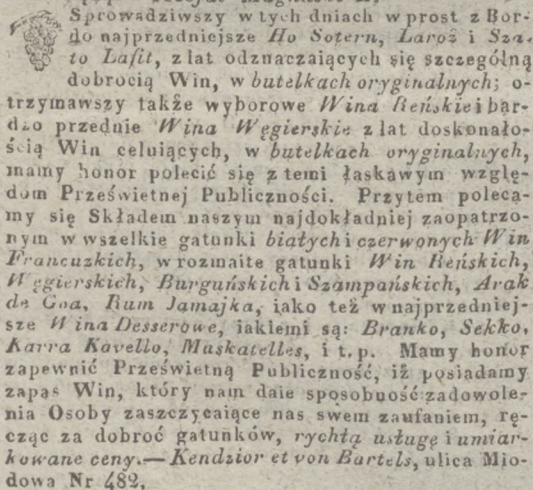 Sprowadziwszy w tych dniach wprost z Bor-
do najprzedniejsze Ho Sotern, Laroż i Sza-
to Lafit, z lat odznaczaiących się szczególną
dobrocią Win, w butelkach oryginalnych; o-
trzymawszy także wyborowe Wina Reńskie i bar-
dzo przednie Wina Węgierskie z lat doskonało-
ścią Win celuiących, w butelkach oryginalnych,
mamy honor polecić się z temi łaskawym wzglę-
dom Prześwietnej Publiczności. Przytem poleca-
my się Składem naszym najdokładniej zaopatrzo-
nym w wszelkie gatunki białych i czerwonych Win
Francuzkich, w rozmaite gatunki Win Reńskich,
Węgierskich, Burguńskich i Szampańskich, Arak
de Goa, Rum Jamajka, iako też w najprzedniej-
sze Wina Desserowe, iakiemi są: Branko, Sekko,
Karra Kavello, Muskatelles, i t. p. Mamy honor
zapewnić Prześwietną Publiczność, iż posiadamy
zapas Win, który nam daie sposobność zadowole-
nia Osoby zaszczycaiące nas swem zaufaniem, rę-
cząc za dobroć gatunków, rychłą usługę i umiar-
kowane ceny.— Kendzior et von Bartels, ulica Mio-
dowa Nr 482.